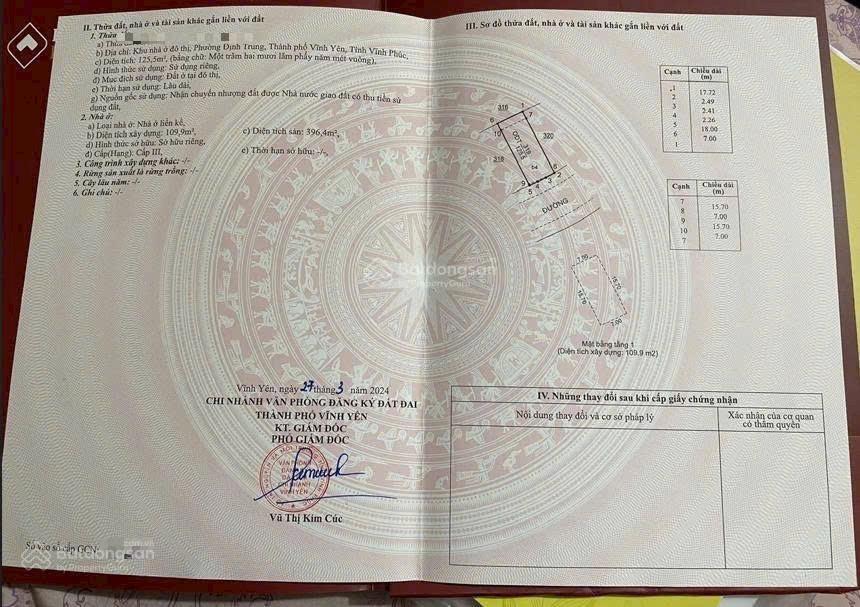 II. Thửa đất, nhà ở và tài sản khác gắn liền với đất
1. Thửa
a) Thửa
b) Địa chỉ: Khu nhà ở đô thị, Phường Định Trung, Thành phố Vĩnh Yên, Tỉnh Vĩnh Phúc,
c) Diện tích: 125,5m², (bằng chữ: Một trăm hai mươi lăm phẩy năm mét vuông),
d) Hình thức sử dụng: Sử dụng riêng,
đ) Mục đích sử dụng: Đất ở tại đô thị,
e) Thời hạn sử dụng: Lâu dài,
g) Nguồn gốc sử dụng: Nhận chuyển nhượng đất được Nhà nước giao đất có thu tiền sử
dụng đất,
2. Nhà ở:
a) Loại nhà ở: Nhà ở liền kề,
b) Diện tích xây dựng: 109,9m², c) Diện tích sàn: 396,4m²,
d) Hình thức sở hữu: Sở hữu riêng,
đ) Cấp(Hạng): Cấp III, e) Thời hạn sở hữu: -/-,
3. Công trình xây dựng khác: -/-
4. Rừng sản xuất là rừng trồng: -/-
5. Cây lâu năm: -/-
6. Ghi chú: -/-
Vĩnh Yên, ngày 27 tháng 3 năm 2024
CHI NHÁNH VĂN PHÒNG ĐĂNG KÝ ĐẤT ĐAI
THÀNH PHỐ VĨNH YÊN
KT. GIÁM ĐỐC
PHÓ GIÁM ĐỐC
Vũ Thị Kim Cúc
Số vào sổ cấp GCN:
III. Sơ đồ thửa đất, nhà ở và tài sản khác gắn liền với đất
Cạnh Chiều dài
(m)
1
17.72
2
2.49
3
2.41
4
2.26
5
18.00
6
7.00
1
Cạnh Chiều dài
(m)
7
15.70
8
7.00
9
15.70
10
7.00
7
316 1
6 7
10
320
319
ODT 125.5
318
8
9 2
5 4 3
ĐƯỜNG
7.00
15.70
15.70
7.00
Mặt bằng tầng 1
(Diện tích xây dựng: 109.9 m2)
IV. Những thay đổi sau khi cấp giấy chứng nhận
Nội dung thay đổi và cơ sở pháp lý Xác nhận của cơ quan
có thẩm quyền
Batdongsan
by PropertyGuru
Batdongsan
by PropertyGuru